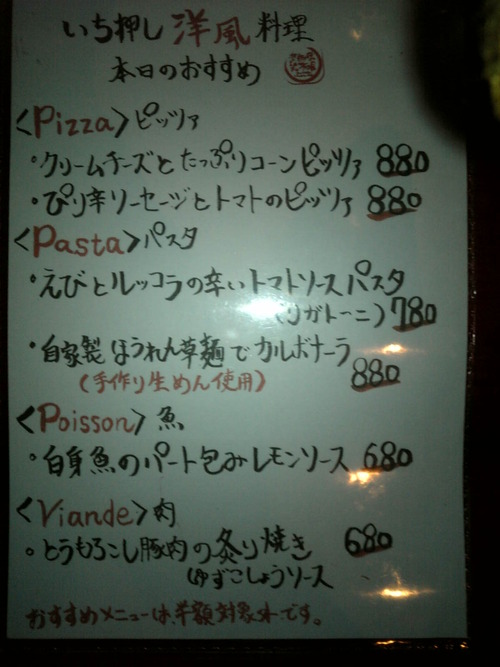 いち押し洋風料理
本日のおすすめ
<Pizza>ピッツァ
・クリームチーズとたっぷりコーンピッツァ 880
・ぴり辛ソーセージとトマトのピッツァ 880
<Pasta>パスタ
・えびとルッコラの辛いトマトソースパスタ
(リガトーニ) 780
・自家製ほうれん草麺でカルボナーラ
(手作り生めん使用) 880
<Poisson>魚
・白身魚のパート包みレモンソース 680
<Viande>肉
・とうもろこし豚肉の炙り焼き 680
ゆずこしょうソース
おすすめメニューは半額対象外です。